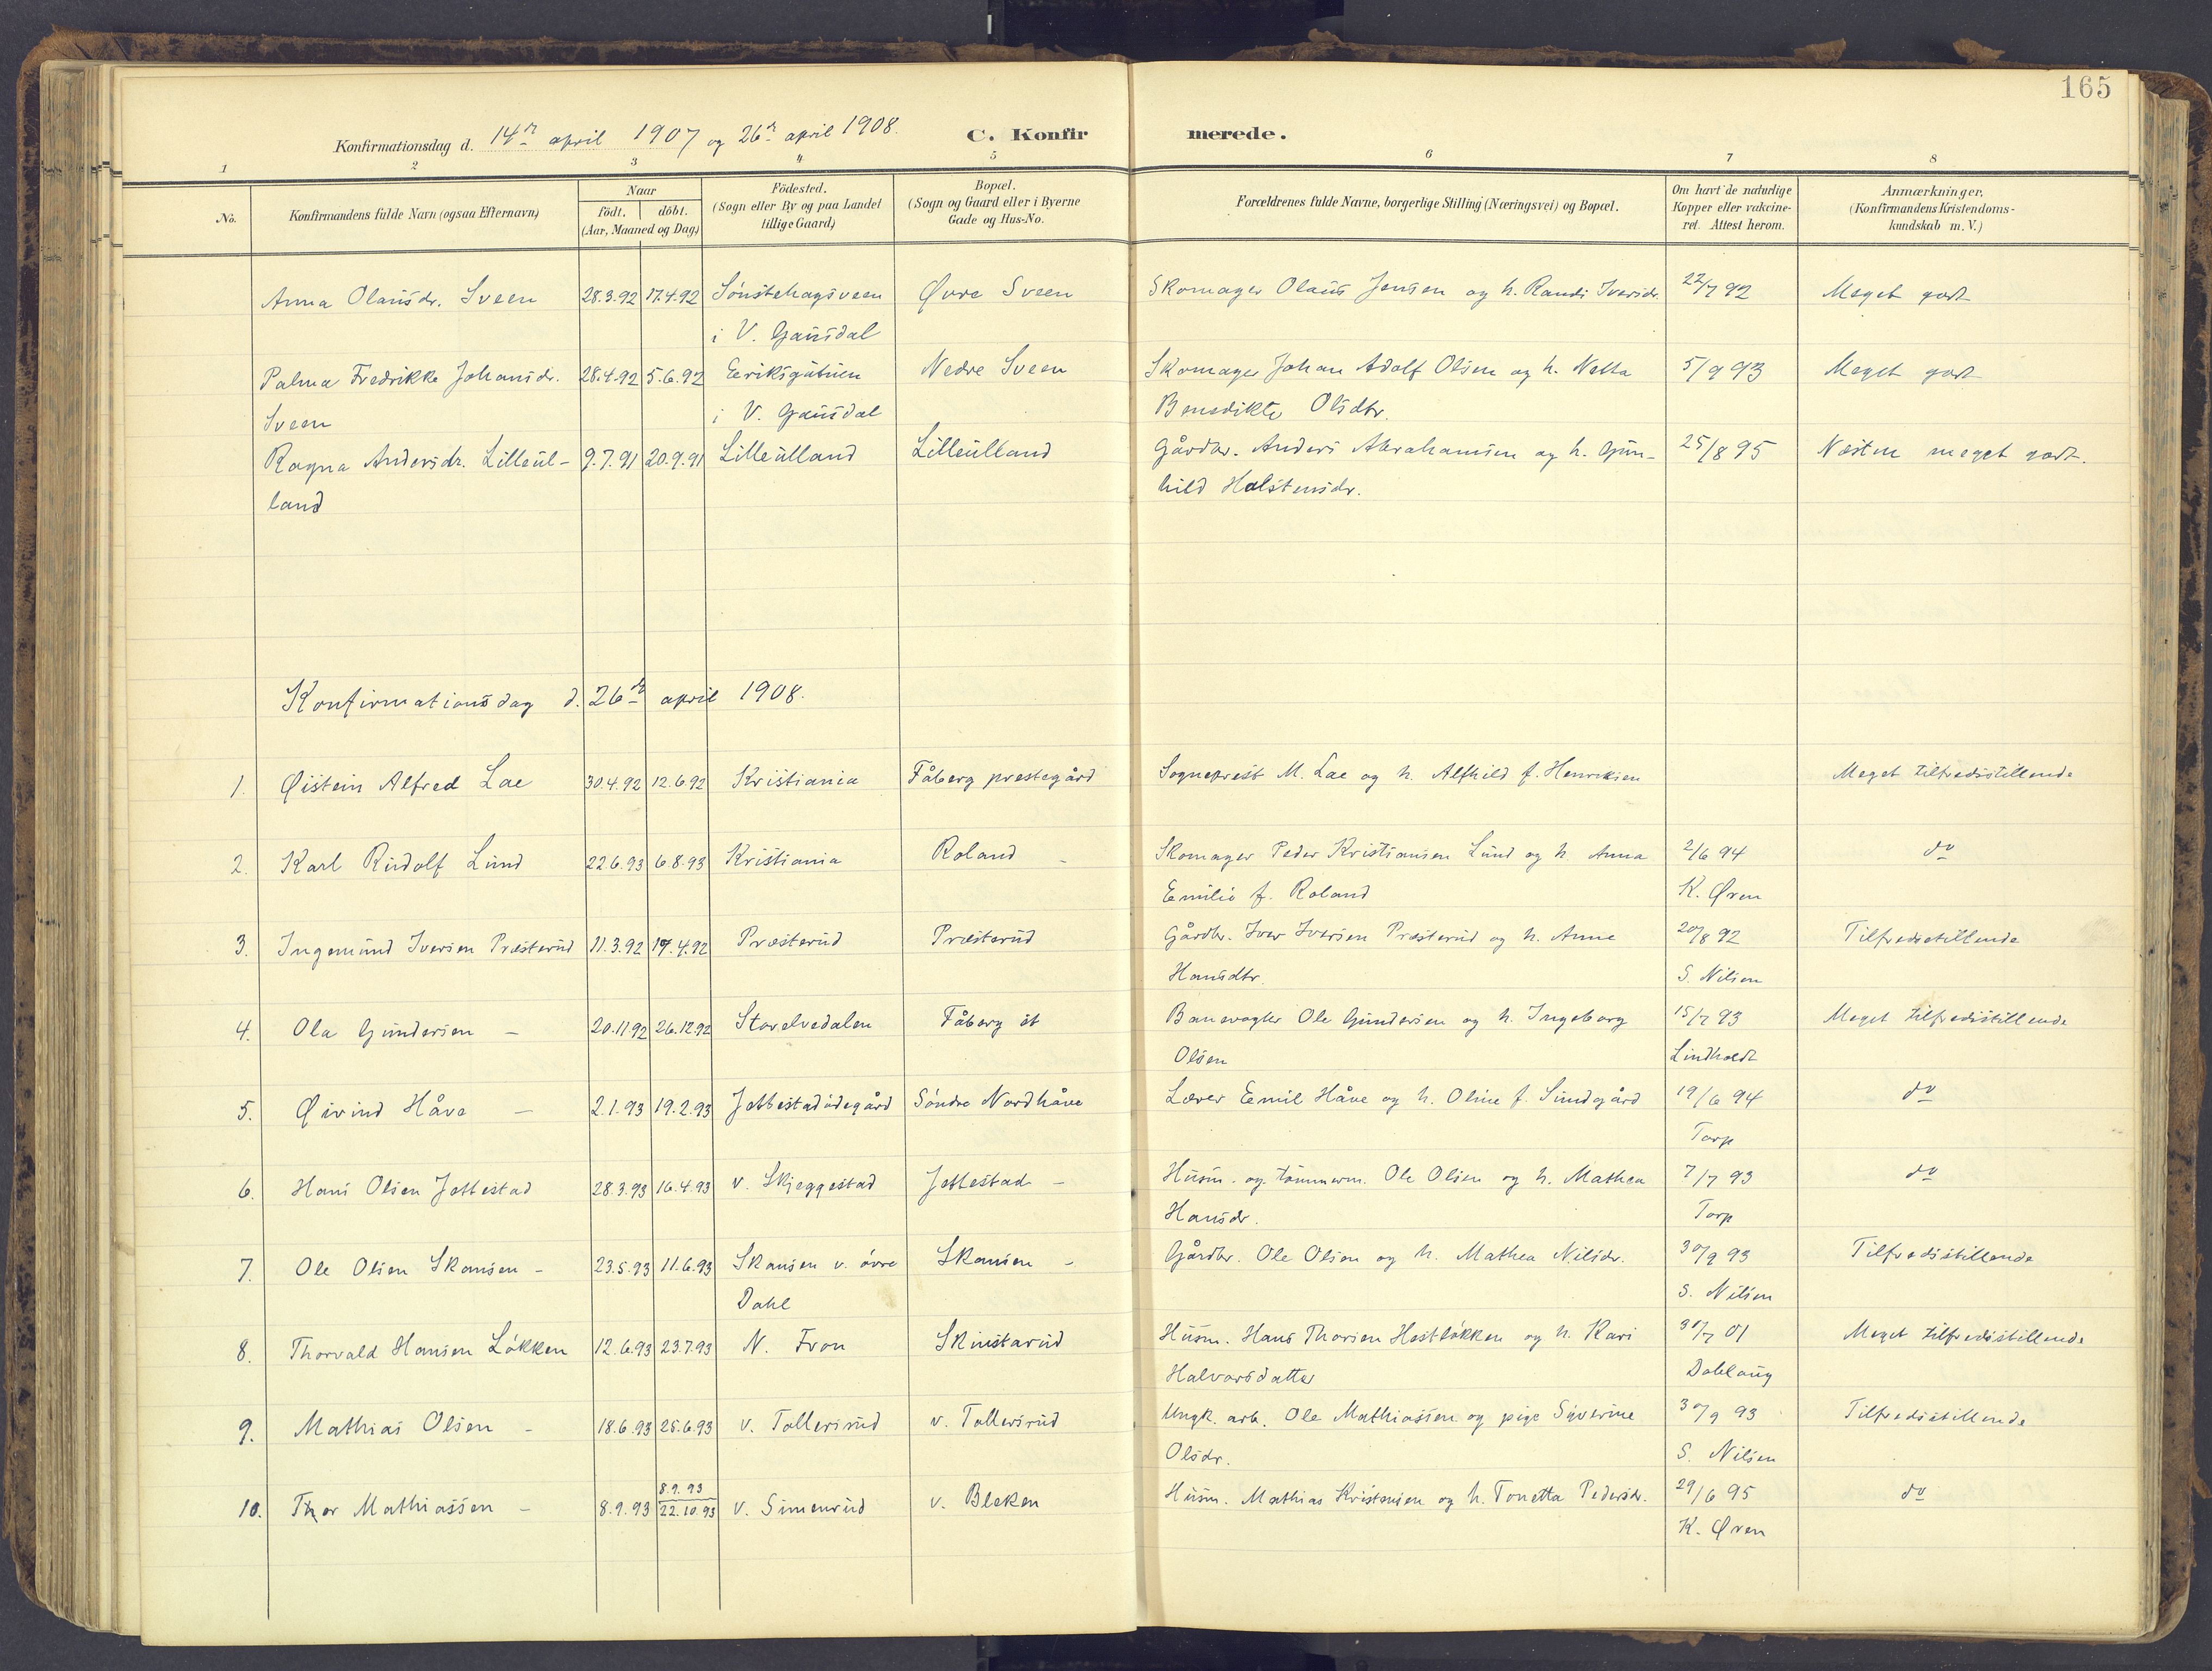 165
Konfirmationsdag d. 14de april 1907 og 26de april 1908. C. Konfirmerede.
1 2 3 4 5 6 7 8
No. Konfirmandens fulde Navn (ogsaa Efternavn) Naar födt. döbt. (Aar, Maaned og Dag) Födested. (Sogn eller By og paa Landet tillige Gaard) Bopæl. (Sogn og Gaard eller i Byerne Gade og Hus-No. Forældrenes fulde Navne, borgerlige Stilling (Næringsvei) og Bopæl. Om havt de naturlige Kopper eller vakcineret. Attest herom. Anmærkninger. (Konfirmandens Kristendomskundskab m. V.)
Anna Olausdr. Sveen 28.3.92 17.4.92 Sønstehagsveen Øvre Sveen Skomager Olaus Jensen og h. Randi Iversdr. 22/7 92 Meget godt
i V. Gausdal
Palma Fredrikke Johansdr. 28.4.92 5.6.92 Eeriksgutuen Nedre Sveen Skomager Johan Adolf Olsen og h. Netta 5/9 93 Meget godt
Sveen i V. Gausdal Benedikte Olsdtr.
Ragna Andersdr. Lilleul- 9.7.91 20.9.91 Lilleulland Lilleulland Gårdbr. Anders Abrahamsen og h. Gun- 25/8 95 Næsten meget godt.
land hild Halstensdr.
Konfirmationsdag d. 26de april 1908.
1. Øistein Alfred Lae 30.4.92 12.6.92 Kristiania Fåberg prestegård Sogneprest M. Lae og h. Alfhild f. Henriksen Meget tilfredsstillende
2. Karl Rudolf Lund 22.6.93 6.8.93 Kristiania Roland - Skomager Peder Kristiansen Lund og h. Anna 2/6 94 do
Emilie f. Roland K. Øren
3. Ingemund Iversen Præsterud 11.3.92 17.4.92 Præsterud Præsterud Gårdbr. Iver Iversen Præsterud og h. Anne 20/8 92 Tilfredsstillende
Hansdtr. S. Nilsen
4. Ola Gundersen - 20.11.92 26.12.92 Storelvedalen Fåberg st Banevogter Ole Gundersen og h. Ingeborg 15/7 93 Meget tilfredsstillende
Olsen Lindholdt
5. Øivind Håve - 2.1.93 19.2.93 Jettestadødegård Søndre Nordhåve Lærer Eemil Håve og h. Oline f. Sundgård 19/6 94 do
Torp
6. Hans Olsen Jettestad 28.3.93 16.4.93 v. Skjeggestad Jettestad - Husm. og tømmerm. Ole Olsen og h. Mathea 7/7 93 do
Hansdr. Torp
7. Ole Olsen Skansen - 23.5.93 11.6.93 Skansen v. øvre Skansen - Gårdbr. Ole Olsen og h. Mathea Nilsdr. 30/9 93 Tilfredsstillende
Dahl S. Nilsen
8. Thorvald Hansen Løkken 12.6.93 23.7.93 N. Fron Skustarud Husm. Hans Thorsen Hestløkken og h. Kari 30/7 01 Meget tilfredsstillende
Halvorsdatter Dahlaug
9. Mathias Olsen - 18.6.93 25.6.93 v. Tollersrud v. Tollersrud Ungk. arb. Ole Mathiassen og pige Syverine 30/9 93 Tilfredsstillende
Olsdr. S. Nilsen
10. Thor Mathiassen - 8.9.93 8.9.93 22.10.93 v. Simenrud v. Bleken Husm. Mathias Kristensen og h. Tonetta Pedersdr. 29/6 95 do
K. Øren